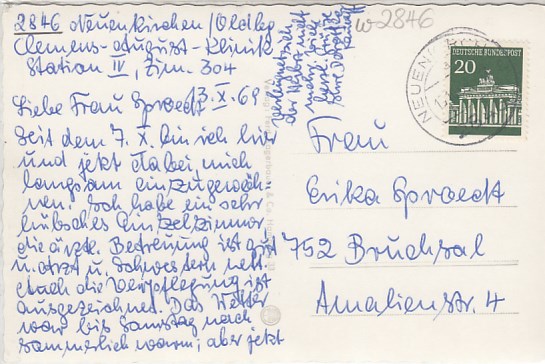 2846 Neuenkirchen/Oldbg
Clemens-August-Klinik
Station IV, Zim. 304
13.X.69
Liebe Frau Sproedt
Seit dem 7. X. bin ich hier
und jetzt dabei, mich
langsam einzugewöh-
nen. Ich habe ein sehr
hübsches Einzelzimmer
die ärztl. Betreuung ist gut
u. Arzt u. Schwestern nett.
Auch die Verpflegung ist
ausgezeichnet. Das Wetter
war bis Samstag noch
sommerlich warm, aber jetzt
w 2846
NEUENK
DEUTSCHE BUNDESPOST
20
Frau
Erika Sproedt
752 Bruchsal
Amalienstr. 4